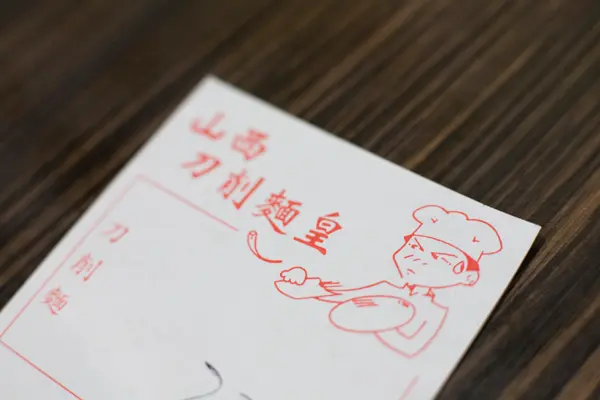 山西
刀削麵皇
刀削麵